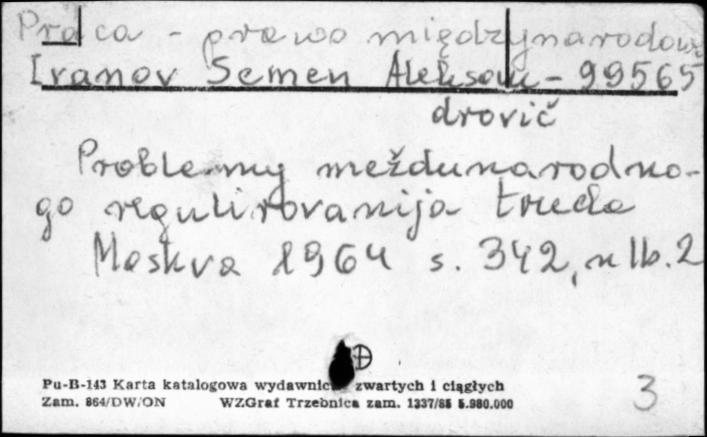 Praca - prawo międzynarodowe
Ivanov Semen Aleksan- 99565
drovič
Problemy meždunarodno-
go regulirovanija truda
Moskva 1964 s. 342, nlb. 2
Pu-B-143 Karta katalogowa wydawnictw zwartych i ciągłych
Zam. 864/DW/ON WZGraf Trzebnica zam. 1337/85 5.980.000
3